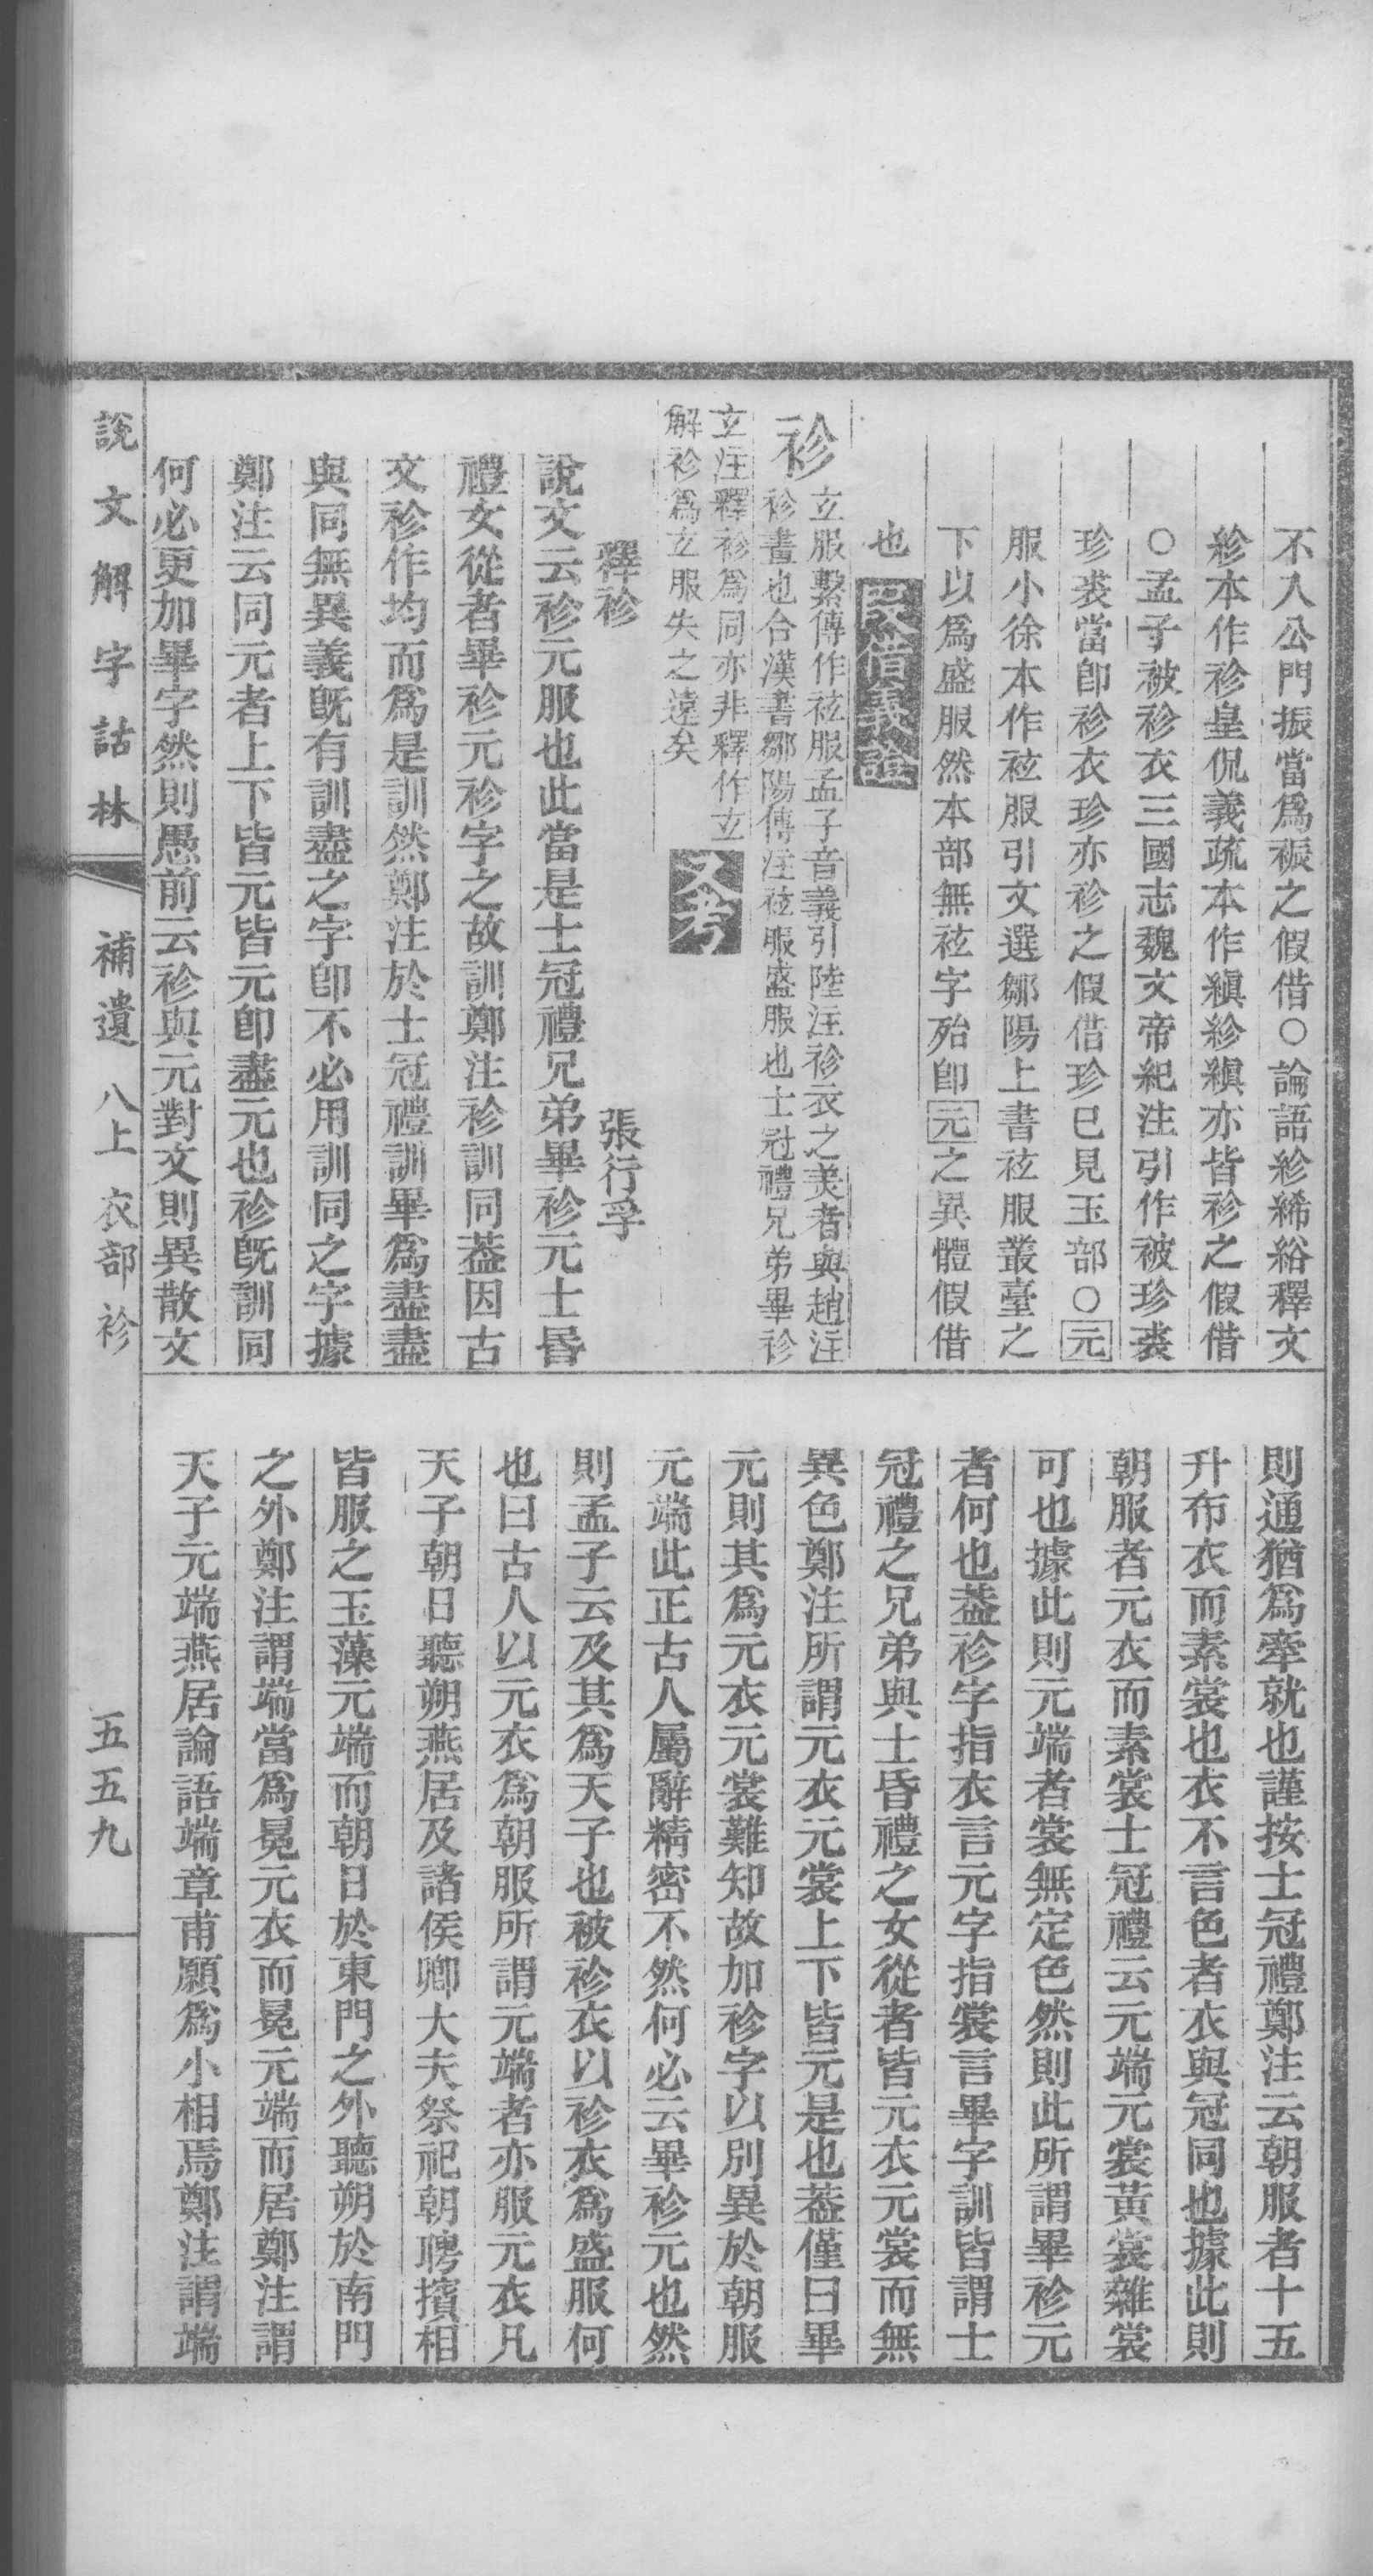 不入公門振當爲裖之假借○論語紾絺綌釋文
紾本作袗皇侃義疏本作縝紾縝亦皆袗之假借
○孟子被袗衣三國志魏文帝紀注引作被珍裘
珍裘當卽袗衣珍亦袗之假借珍已見玉部○元
服小徐本作袨服引文選鄒陽上書袨服叢臺之
下以爲盛服然本部無袨字殆卽元之異體假借
也
袗
玄服繫傳作袨服孟子音義引陸注袗衣之美者與趙注
袗畫也合漢書鄒陽傳注袨服盛服也士冠禮兄弟畢袗
玄注釋袗爲同亦非釋作玄
解袗爲玄服失之遠矣
釋袗 張行孚
說文云袗元服也此當是士冠禮兄弟畢袗元士昬
禮女從者畢袗元袗字之故訓鄭注袗訓同葢因古
文袗作均而爲是訓然鄭注於士冠禮訓畢爲盡盡
與同無異義旣有訓盡之字卽不必用訓同之字據
鄭注云同元者上下皆元皆元卽盡元也袗旣訓同
何必更加畢字然則愚前云袗與元對文則異散文
則通猶爲牽就也謹按士冠禮鄭注云朝服者十五
升布衣而素裳也衣不言色者衣與冠同也據此則
朝服者元衣而素裳士冠禮云元端元裳黃裳雜裳
可也據此則元端者裳無定色然則此所謂畢袗元
者何也葢袗字指衣言元字指裳言畢字訓皆謂士
冠禮之兄弟與士昏禮之女從者皆元衣元裳而無
異色鄭注所謂元衣元裳上下皆元是也葢僅曰畢
元則其爲元衣元裳難知故加袗字以別異於朝服
元端此正古人屬辭精密不然何必云畢袗元也然
則孟子云及其爲天子也被袗衣以袗衣爲盛服何
也曰古人以元衣爲朝服所謂元端者亦服元衣凡
天子朝日聽朔燕居及諸侯卿大夫祭祀朝聘擯相
皆服之玉藻元端而朝日於東門之外聽朔於南門
之外鄭注謂端當爲冕元衣而冕元端而居鄭注謂
天子元端燕居論語端章甫願爲小相焉鄭注謂端
說文解字詁林 補遺 八上 衣部 袗
五五九